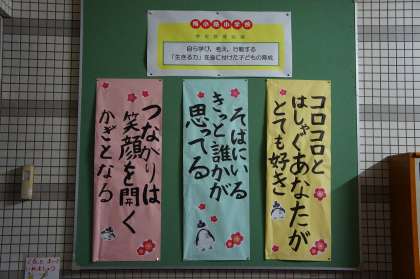 梅小路小学校
学校教育目標
自ら学び、考え、行動する
「生きる力」を身に付けた子どもの育成
コロコロと
はしゃぐあなたが
とても好き
そばにいる
きっと誰かが
思ってる
つながりは
笑顔を開く
かぎとなる